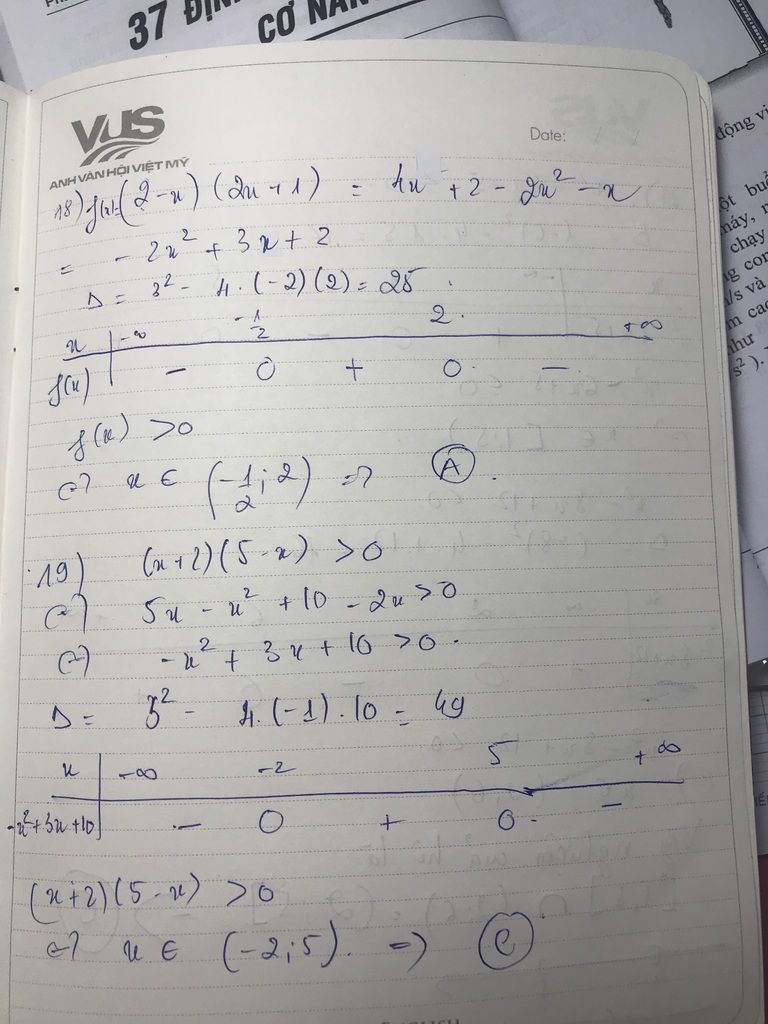 37 ĐỊN
CƠ NĂN
động vi
VUS
ANH VĂN HỘI VIỆT MỸ
Date: / /
18) f(x)=(2-x)(2x+1) = 4x + 2 - 2x² - x
= - 2x² + 3x + 2
Δ = 3² - 4.(-2)(2) = 25.
x | -∞ -1/2 2 +∞
f(x) | - 0 + 0 -
f(x) > 0
⇔ x ∈ (-1/2; 2) ⇒ A.
19) (x+2)(5-x) > 0
⇔ 5x - x² + 10 - 2x > 0
⇔ -x² + 3x + 10 > 0.
Δ = 3² - 4.(-1).10 = 49
x | -∞ -2 5 +∞
-x²+3x+10 | - 0 + 0 -
(x+2)(5-x) > 0
⇔ x ∈ (-2;5). ⇒ C
ột buổ
máy, n
chạy
g con
/s và
m cao
như
s²).